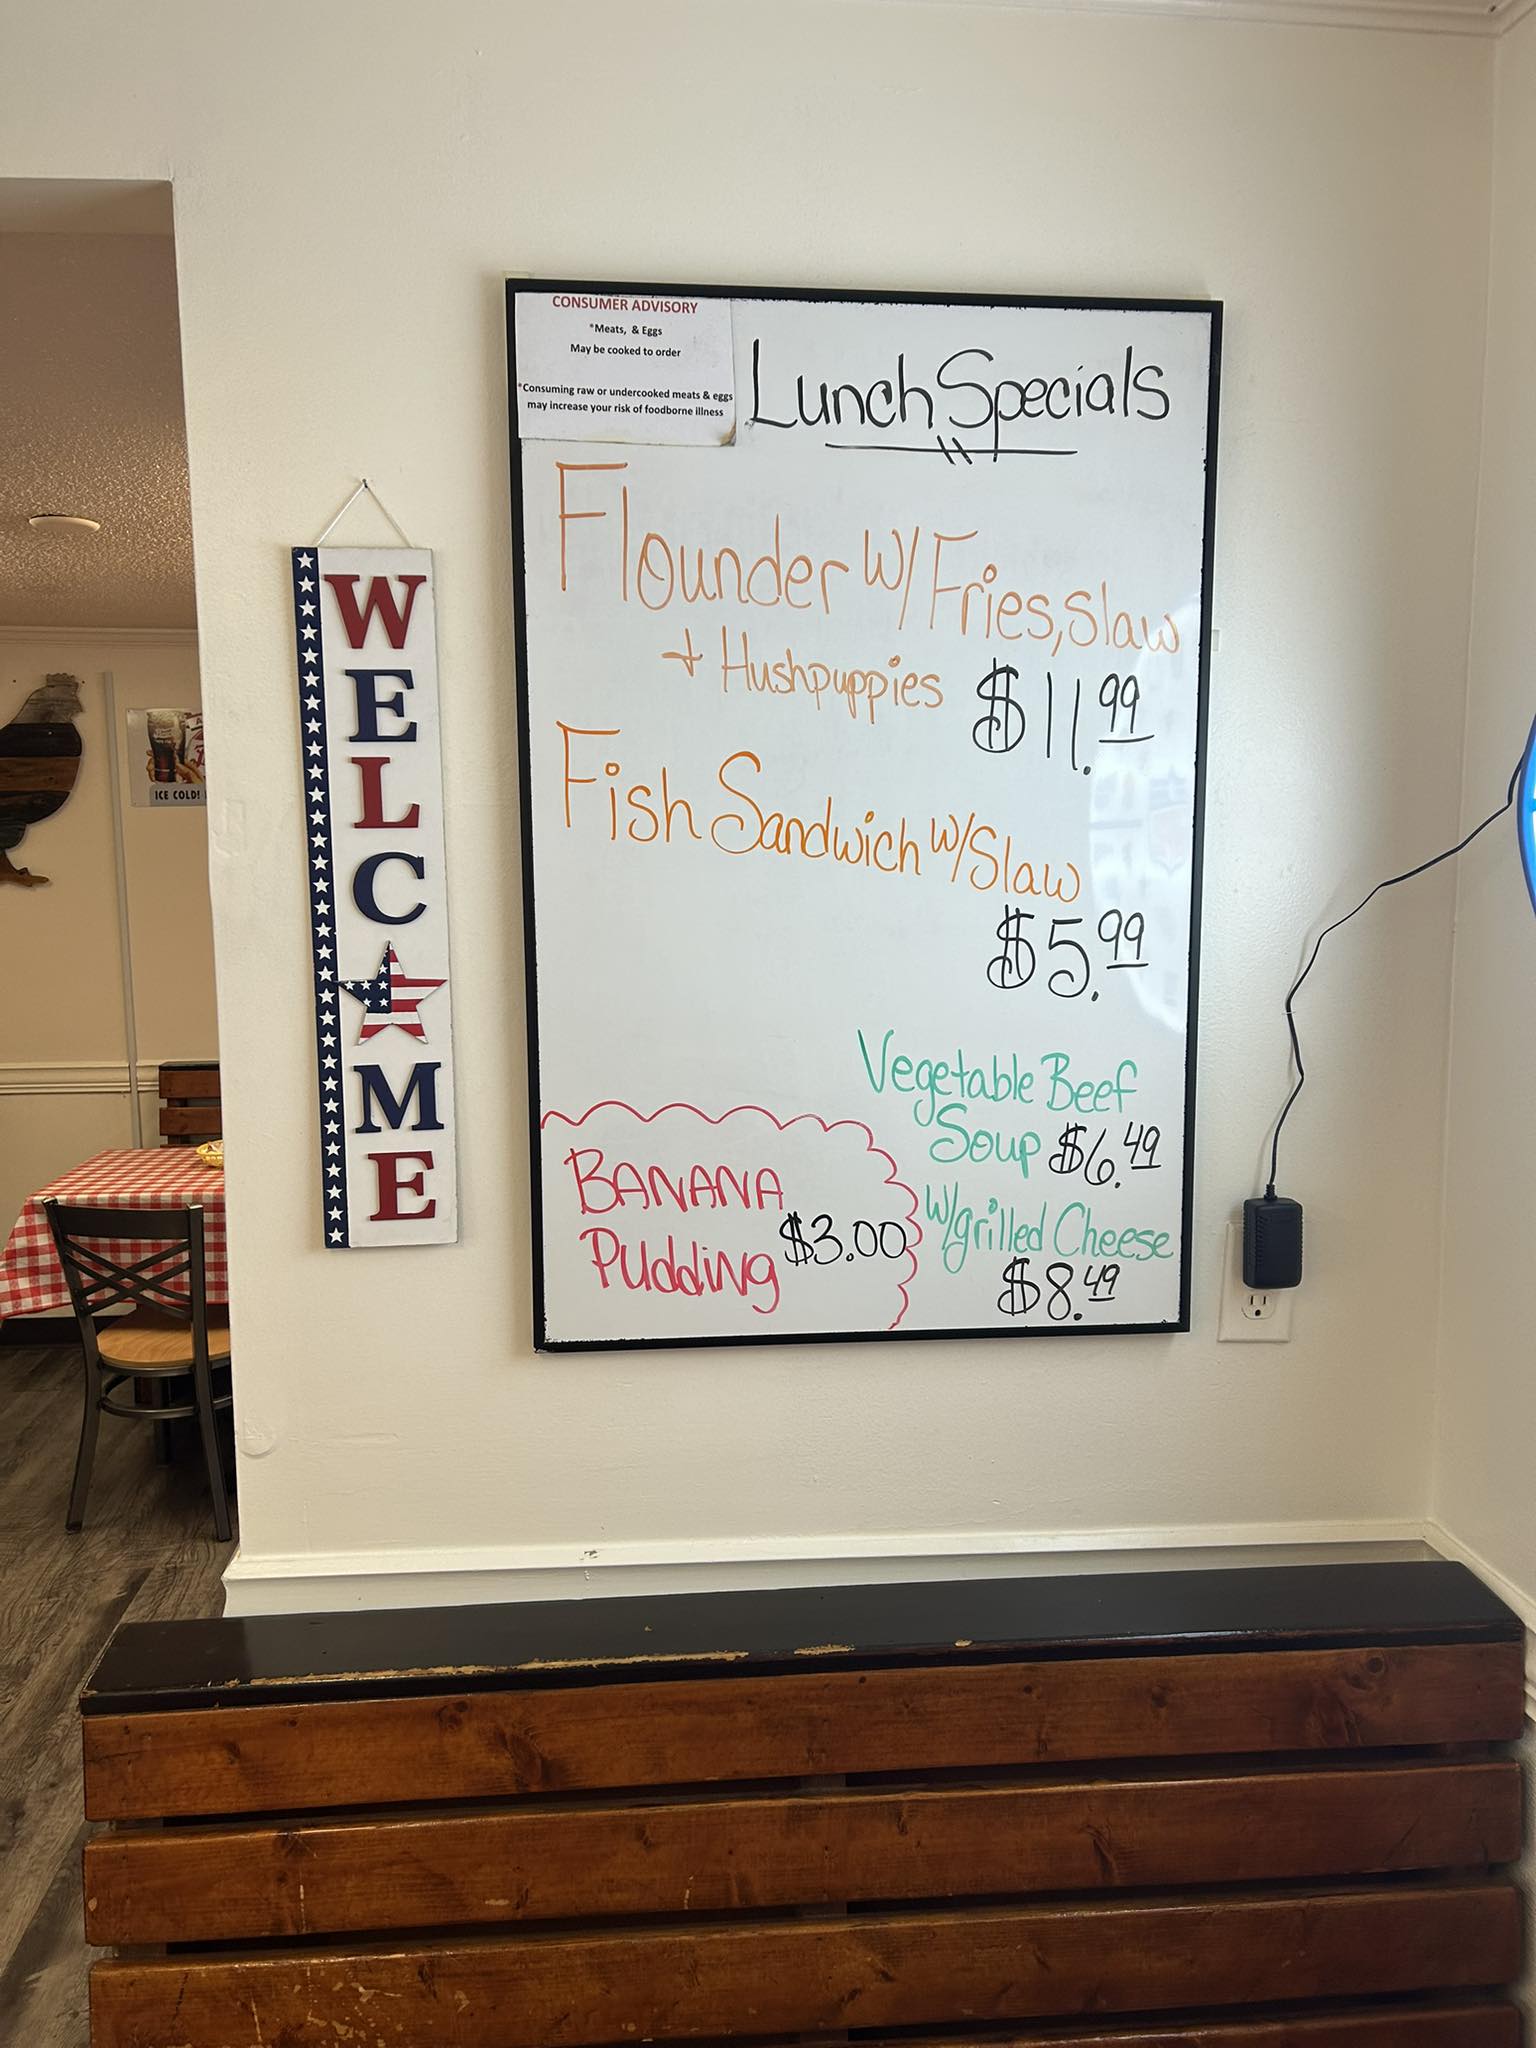 CONSUMER ADVISORY
*Meats, & Eggs
May be cooked to order
*Consuming raw or undercooked meats & eggs
may increase your risk of foodborne illness
Lunch Specials
Flounder w/ Fries, slaw
+ Hushpuppies $11.99
Fish Sandwich w/ Slaw
$5.99
Vegetable Beef
Soup $6.49
w/ grilled Cheese
$8.49
BANANA
Pudding $3.00
WELC ME
ICE COLD!